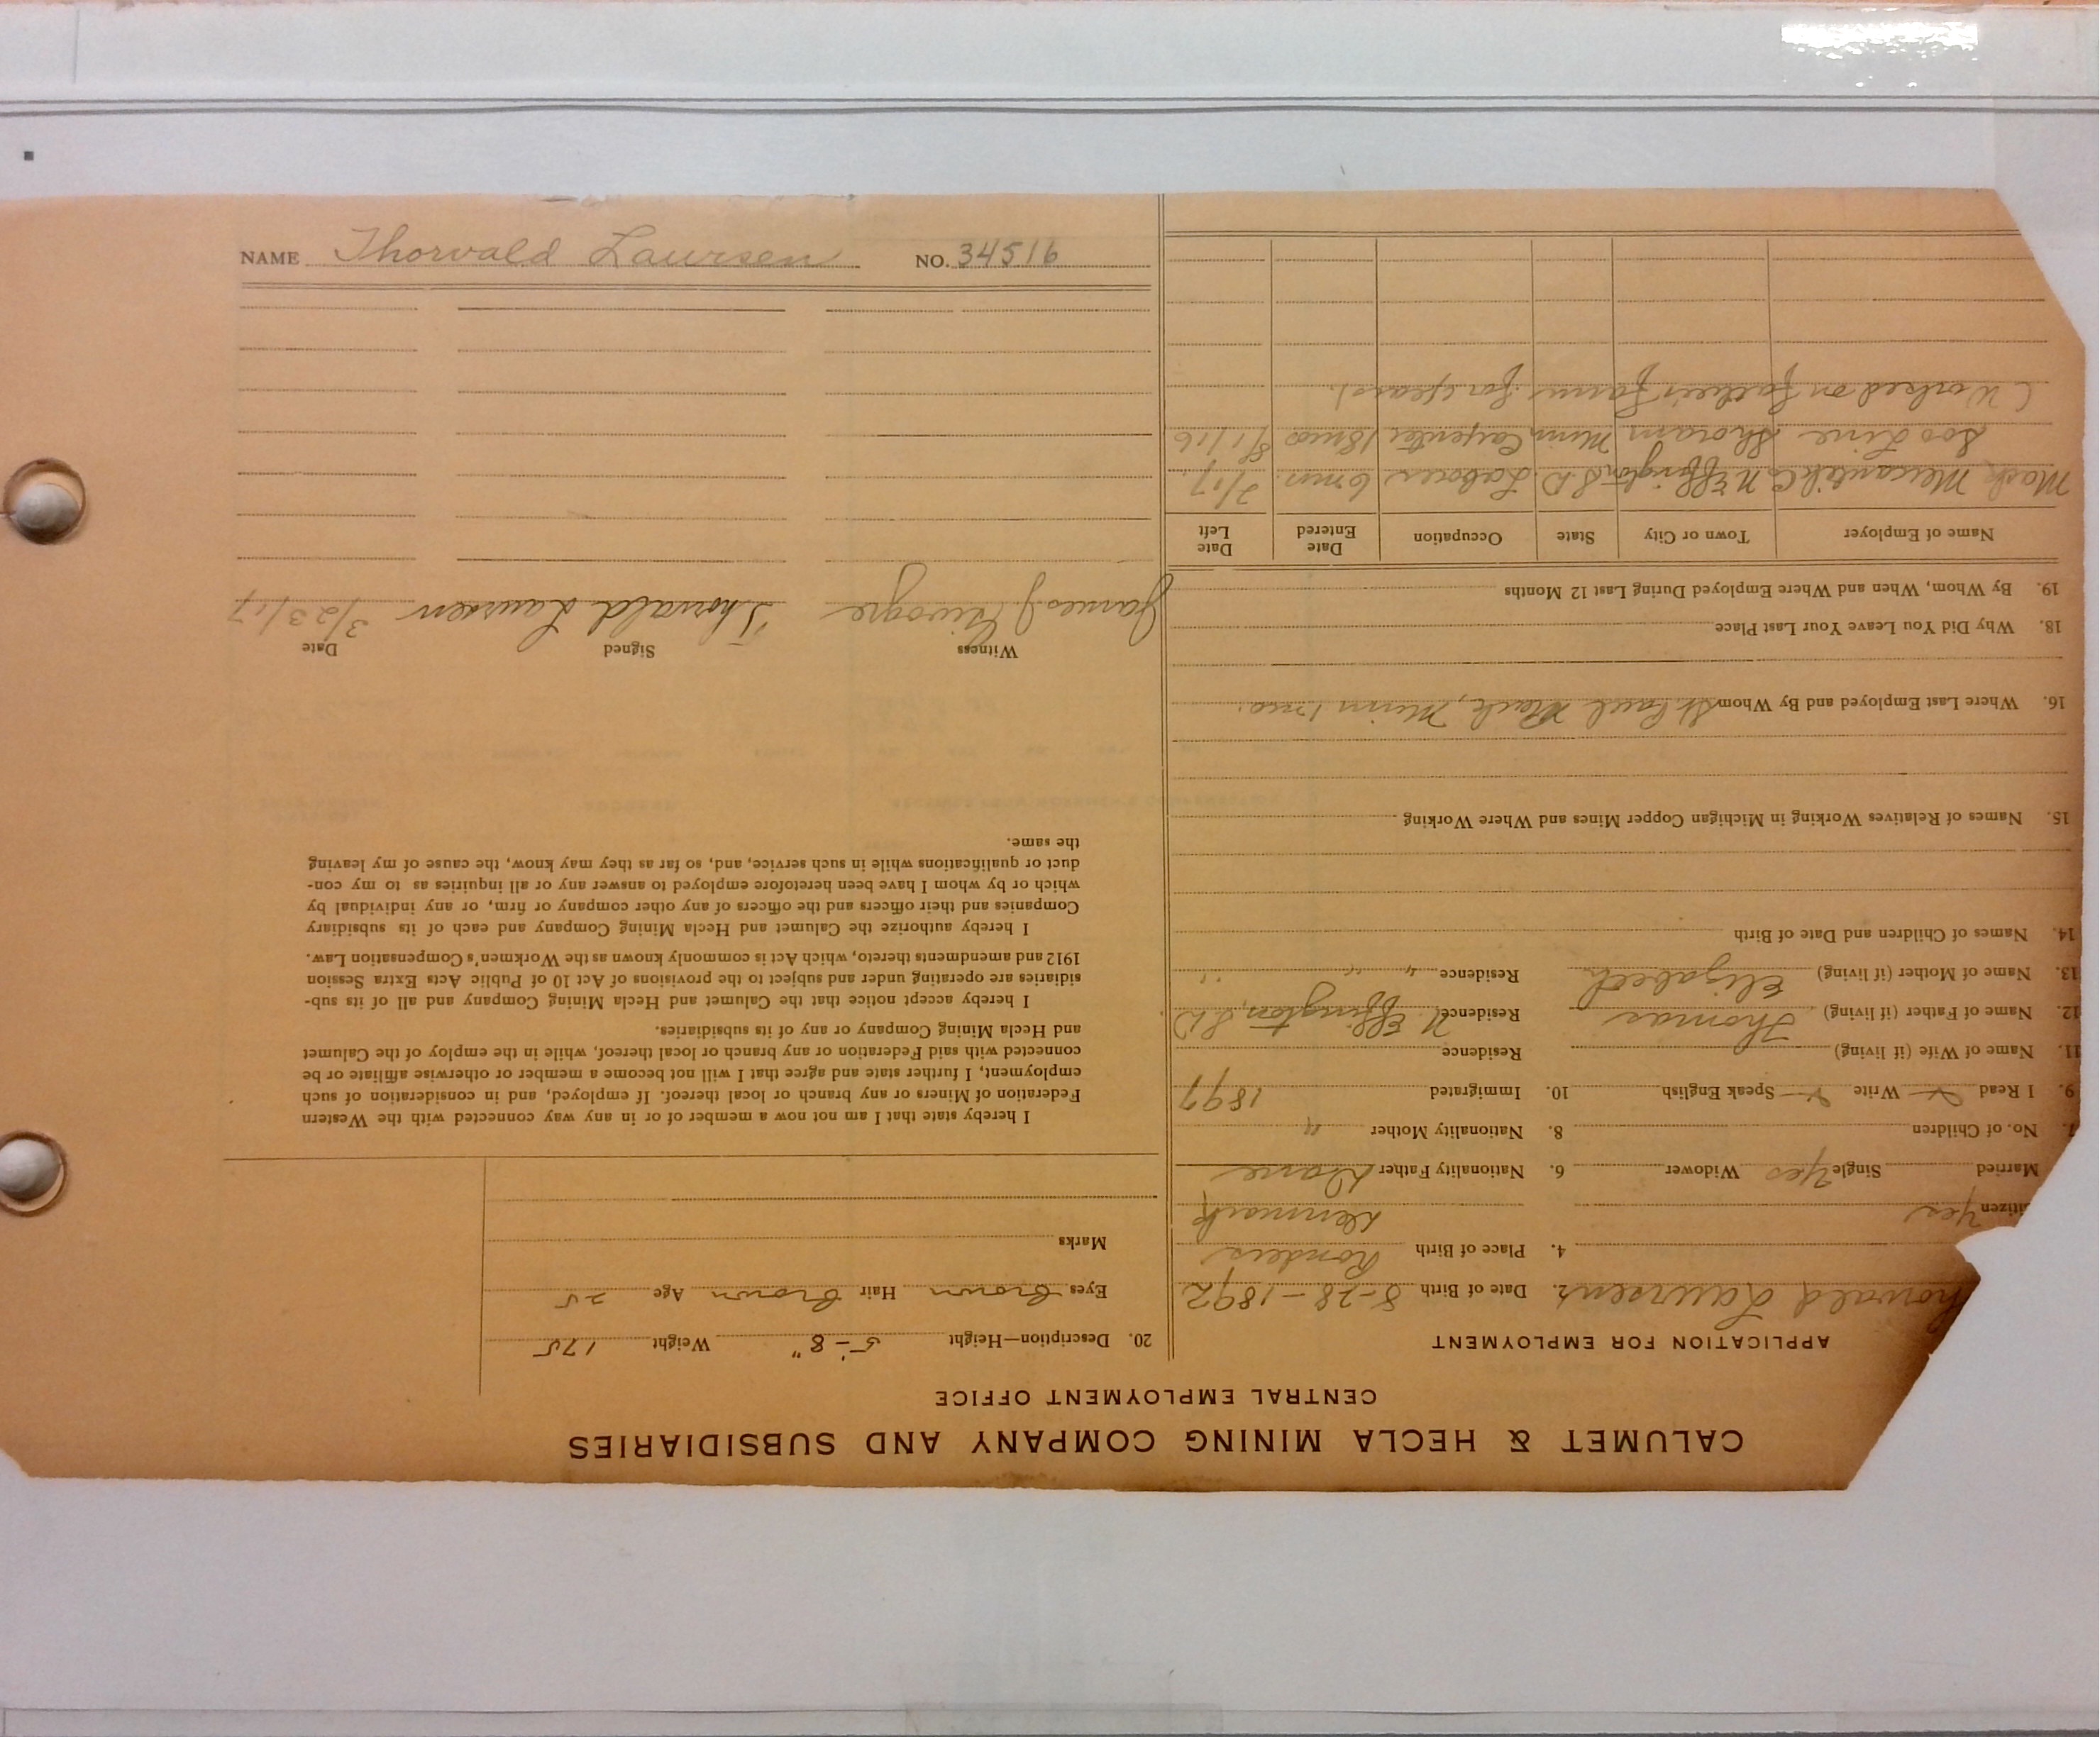 CALUMET & HECLA MINING COMPANY AND SUBSIDIARIES
CENTRAL EMPLOYMENT OFFICE
APPLICATION FOR EMPLOYMENT
horvald Laursen 2. Date of Birth 8-28-1892
4. Place of Birth Randers
itizen Yes Denmark
Married Single Yes Widower 6. Nationality Father Dane
7. No. of Children 8. Nationality Mother "
9. I Read Write Speak English 10. Immigrated 1897
11. Name of Wife (if living) Residence
12. Name of Father (if living) Thomas Residence N Effington, S D
13. Name of Mother (if living) Elizabeth Residence " "
14. Names of Children and Date of Birth
15. Names of Relatives Working in Michigan Copper Mines and Where Working
16. Where Last Employed and By Whom St Paul Minn 1 mo.
18. Why Did You Leave Your Last Place
19. By Whom, When and Where Employed During Last 12 Months
Name of Employer Town or City State Occupation Date Entered Date Left
Mercantile Co N Effington S D. Laborer 6 mos. 2/17.
Soo Line Shoram Minn Carpenter 18 mos 8/1/16
(Worked on father's farm for years).
20. Description—Height 5'-8" Weight 175
Eyes Brown Hair Brown Age 25
Marks
I hereby state that I am not now a member of or in any way connected with the Western
Federation of Miners or any branch or local thereof. If employed, and in consideration of such
employment, I further state and agree that I will not become a member or otherwise affiliate or be
connected with said Federation or any branch or local thereof, while in the employ of the Calumet
and Hecla Mining Company or any of its subsidiaries.
I hereby accept notice that the Calumet and Hecla Mining Company and all of its sub-
sidiaries are operating under and subject to the provisions of Act 10 of Public Acts Extra Session
1912 and amendments thereto, which Act is commonly known as the Workmen's Compensation Law.
I hereby authorize the Calumet and Hecla Mining Company and each of its subsidiary
Companies and their officers and the officers of any other company or firm, or any individual by
which or by whom I have been heretofore employed to answer any or all inquiries as to my con-
duct or qualifications while in such service, and, so far as they may know, the cause of my leaving
the same.
Witness Signed Date
James J Thorvald Laursen 3/23/17
NAME Thorvald Laursen NO. 34516